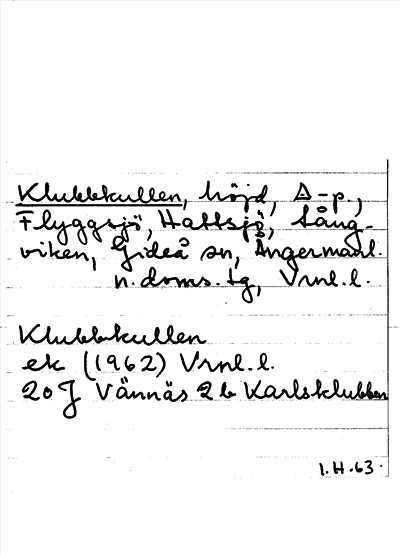 Klubbkullen, höjd, Δ-p.,
Flyggsjö, Hattsjö, Lång-
viken, Gideå sn, Ångermanl.
n. doms. tg, Vrnl. l.
Klubbkullen
ek (1962) Vrnl. l.
20 J Vännäs 2b Karlsklubben
I.H.63.